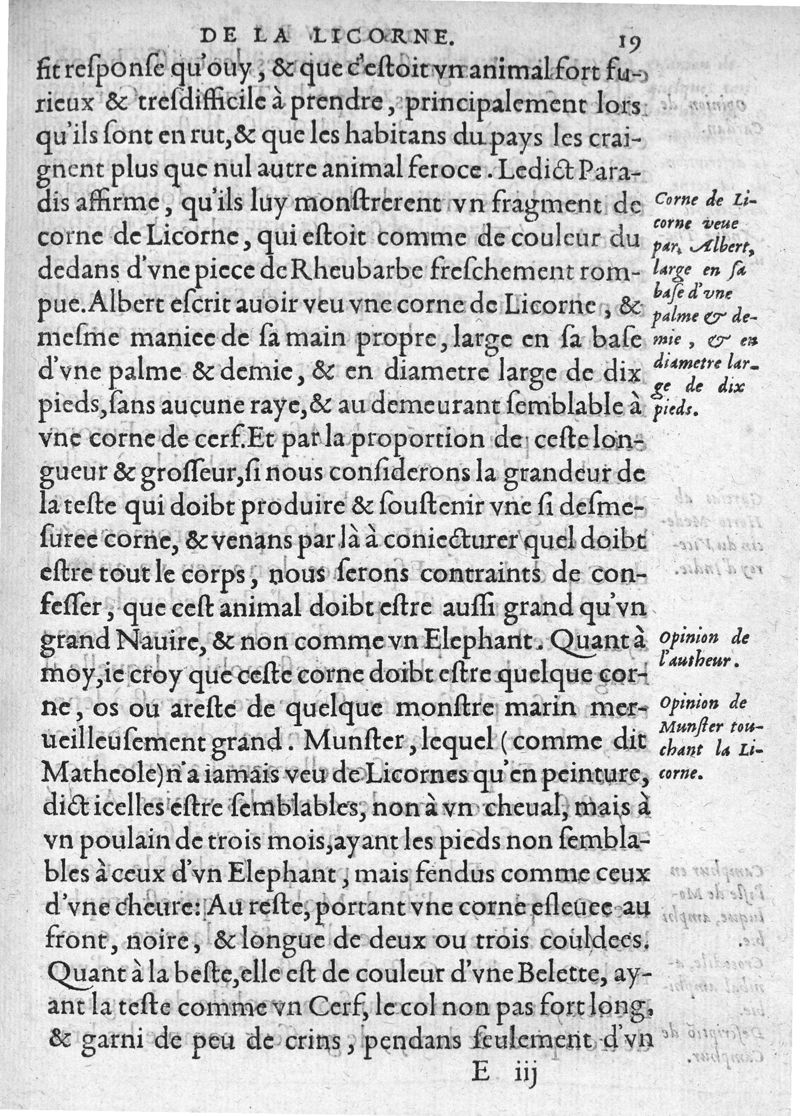 DE LA LICORNE. 19
fit reſponſe qu'ouy, & que c'eſtoit vn animal fort fu-
rieux & treſdifficile à prendre, principalement lors
qu'ils ſont en rut, & que les habitans du pays les crai-
gnent plus que nul autre animal feroce. Ledict Para-
dis affirme, qu'ils luy monſtrerent vn fragment de
corne de Licorne, qui eſtoit comme de couleur du
dedans d'vne piece de Rheubarbe freſchement rom-
pue. Albert eſcrit auoir veu vne corne de Licorne, &
meſme maniee de ſa main propre, large en ſa baſe
d'vne palme & demie, & en diametre large de dix
pieds, ſans aucune raye, & au demeurant ſemblable à
vne corne de cerf. Et par la proportion de ceſte lon-
gueur & groſſeur, ſi nous conſiderons la grandeur de
la teſte qui doibt produire & ſouſtenir vne ſi deſme-
ſuree corne, & venans par là à coniecturer quel doibt
eſtre tout le corps, nous ſerons contraints de con-
feſſer, que ceſt animal doibt eſtre auſſi grand qu'vn
grand Nauire, & non comme vn Elephant. Quant à
moy, ie croy que ceſte corne doibt eſtre quelque cor-
ne, os ou areſte de quelque monſtre marin mer-
ueilleuſement grand. Munſter, lequel (comme dit
Matheole) n'a iamais veu de Licornes qu'en peinture,
dict icelles eſtre ſemblables, non à vn cheual, mais à
vn poulain de trois mois, ayant les pieds non ſembla-
bles à ceux d'vn Elephant, mais fendus comme ceux
d'vne cheure: Au reſte, portant vne corne eſleuee au
front, noire, & longue de deux ou trois couldees.
Quant à la beſte, elle eſt de couleur d'vne Belette, ay-
ant la teſte comme vn Cerf, le col non pas fort long,
& garni de peu de crins, pendans ſeulement d'vn
E iij
Corne de Li-
corne veue
par Albert,
large en ſa
baſe d'vne
palme & de-
mie, & en
diametre lar-
ge de dix
pieds.
Opinion de
l'autheur.
Opinion de
Munſter tou-
chant la Li-
corne.